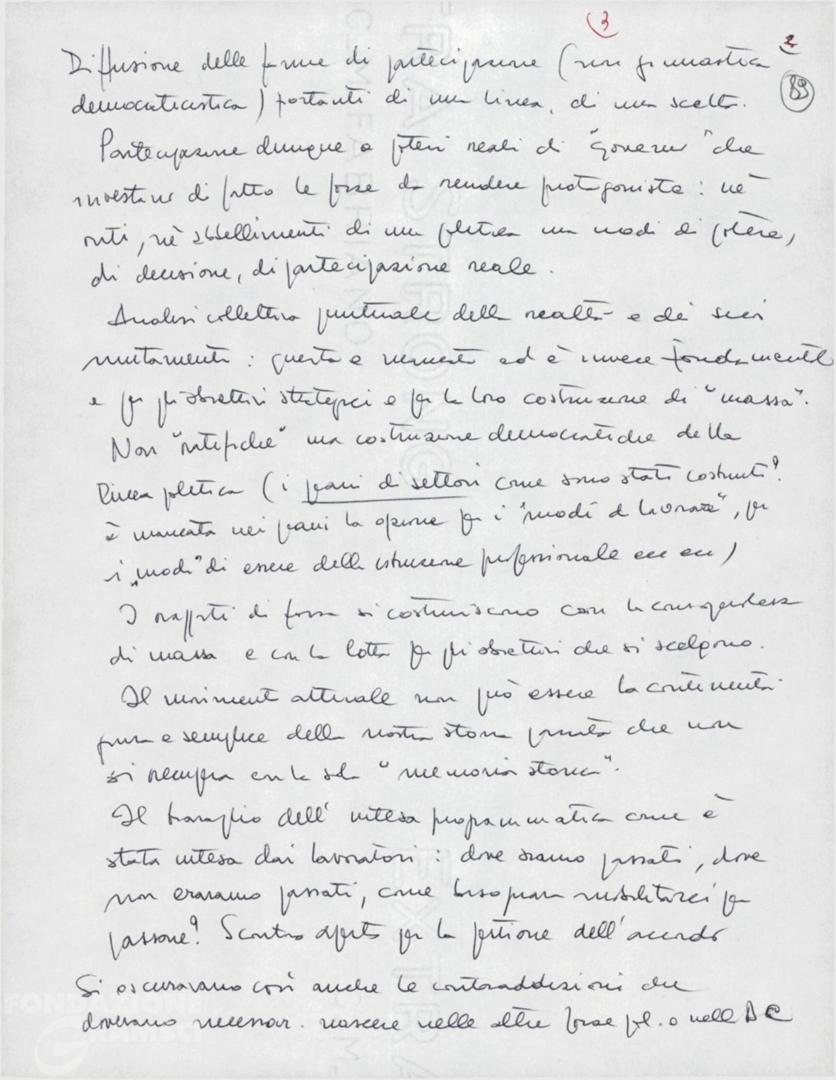 3
2
89
Diffusione delle forme di partecipazione (non ginnastica
democraticistica) portanti di una linea, di una scelta.
Partecipazione dunque a poteri reali di "governo" che
investano di fatto le forze da rendere protagoniste: nè
riti, nè abbellimenti di una politica ma modi di potere,
di decisione, di partecipazione reale.
Analisi collettiva puntuale della realtà e dei suoi
mutamenti: questa è mancata ed è invece fondamentale
e per gli obiettivi strategici e per la loro costruzione di "massa".
Non "ratifiche" ma costruzione democratiche della
linea politica (i piani di settori come sono stati costruiti?
è mancata nei piani la opzione per i "modi di lavorare", per
i "modi" di essere della istruzione professionale ecc ecc)
I rapporti di forza si costruiscono con la consapevolezza
di massa e con la lotta per gli obiettivi che si scelgono.
Il movimento attuale non può essere la continuità
pura e semplice della nostra storia passata che non
si recupera con la sola "memoria storica".
Il travaglio dell'intesa programmatica come è
stata intesa dai lavoratori: dove siamo passati, dove
non eravamo passati, come bisognava mobilitarci per
passare? Scontro aperto per la gestione dell'accordo
Si oscuravano così anche le contraddizioni che
dovevano necessar. nascere nelle altre forze pol. o nella DC
FONDAZIONE
GRAMSCI
EXTRA